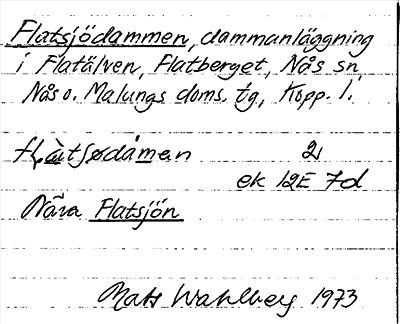 Flatsjödammen, dammanläggning
i Flatälven, Flatberget, Nås sn,
Nås o. Malungs doms. tg, Kopp. l.
2
ek 12E 7d
Nära Flatsjön
Mats Wahlberg 1973